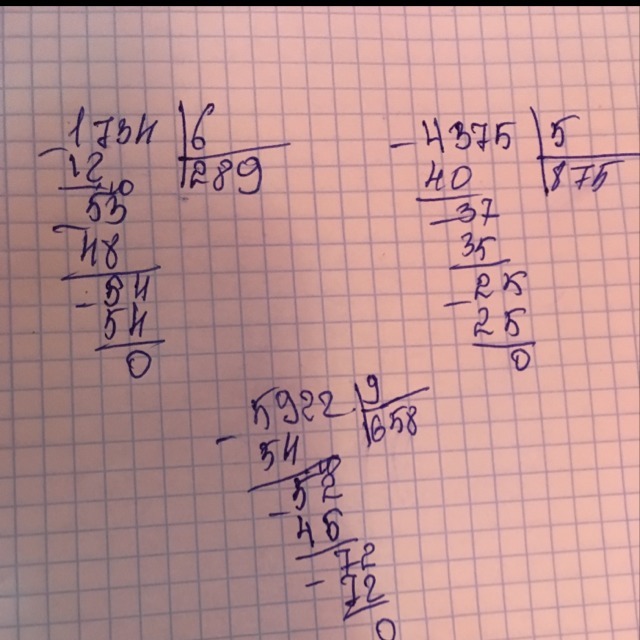 1734 6
12 289
53
48
54
54
0
4375 5
40 875
37
35
25
25
0
5922 9
54 658
52
45
72
72
0